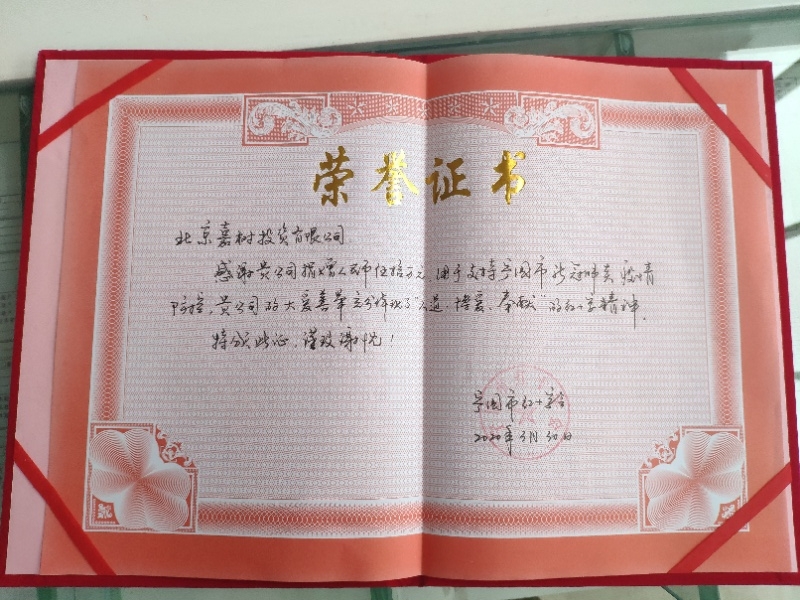 荣誉证书
北京嘉树投资有限公司
感谢贵公司捐赠人民币伍拾万元,用于支持宁国市新冠肺炎疫情
防控,贵公司的大爱善举充分体现了“人道、博爱、奉献”的红十字精神。
特颁此证,谨致谢忱!
宁国市红十字会
2020年3月30日